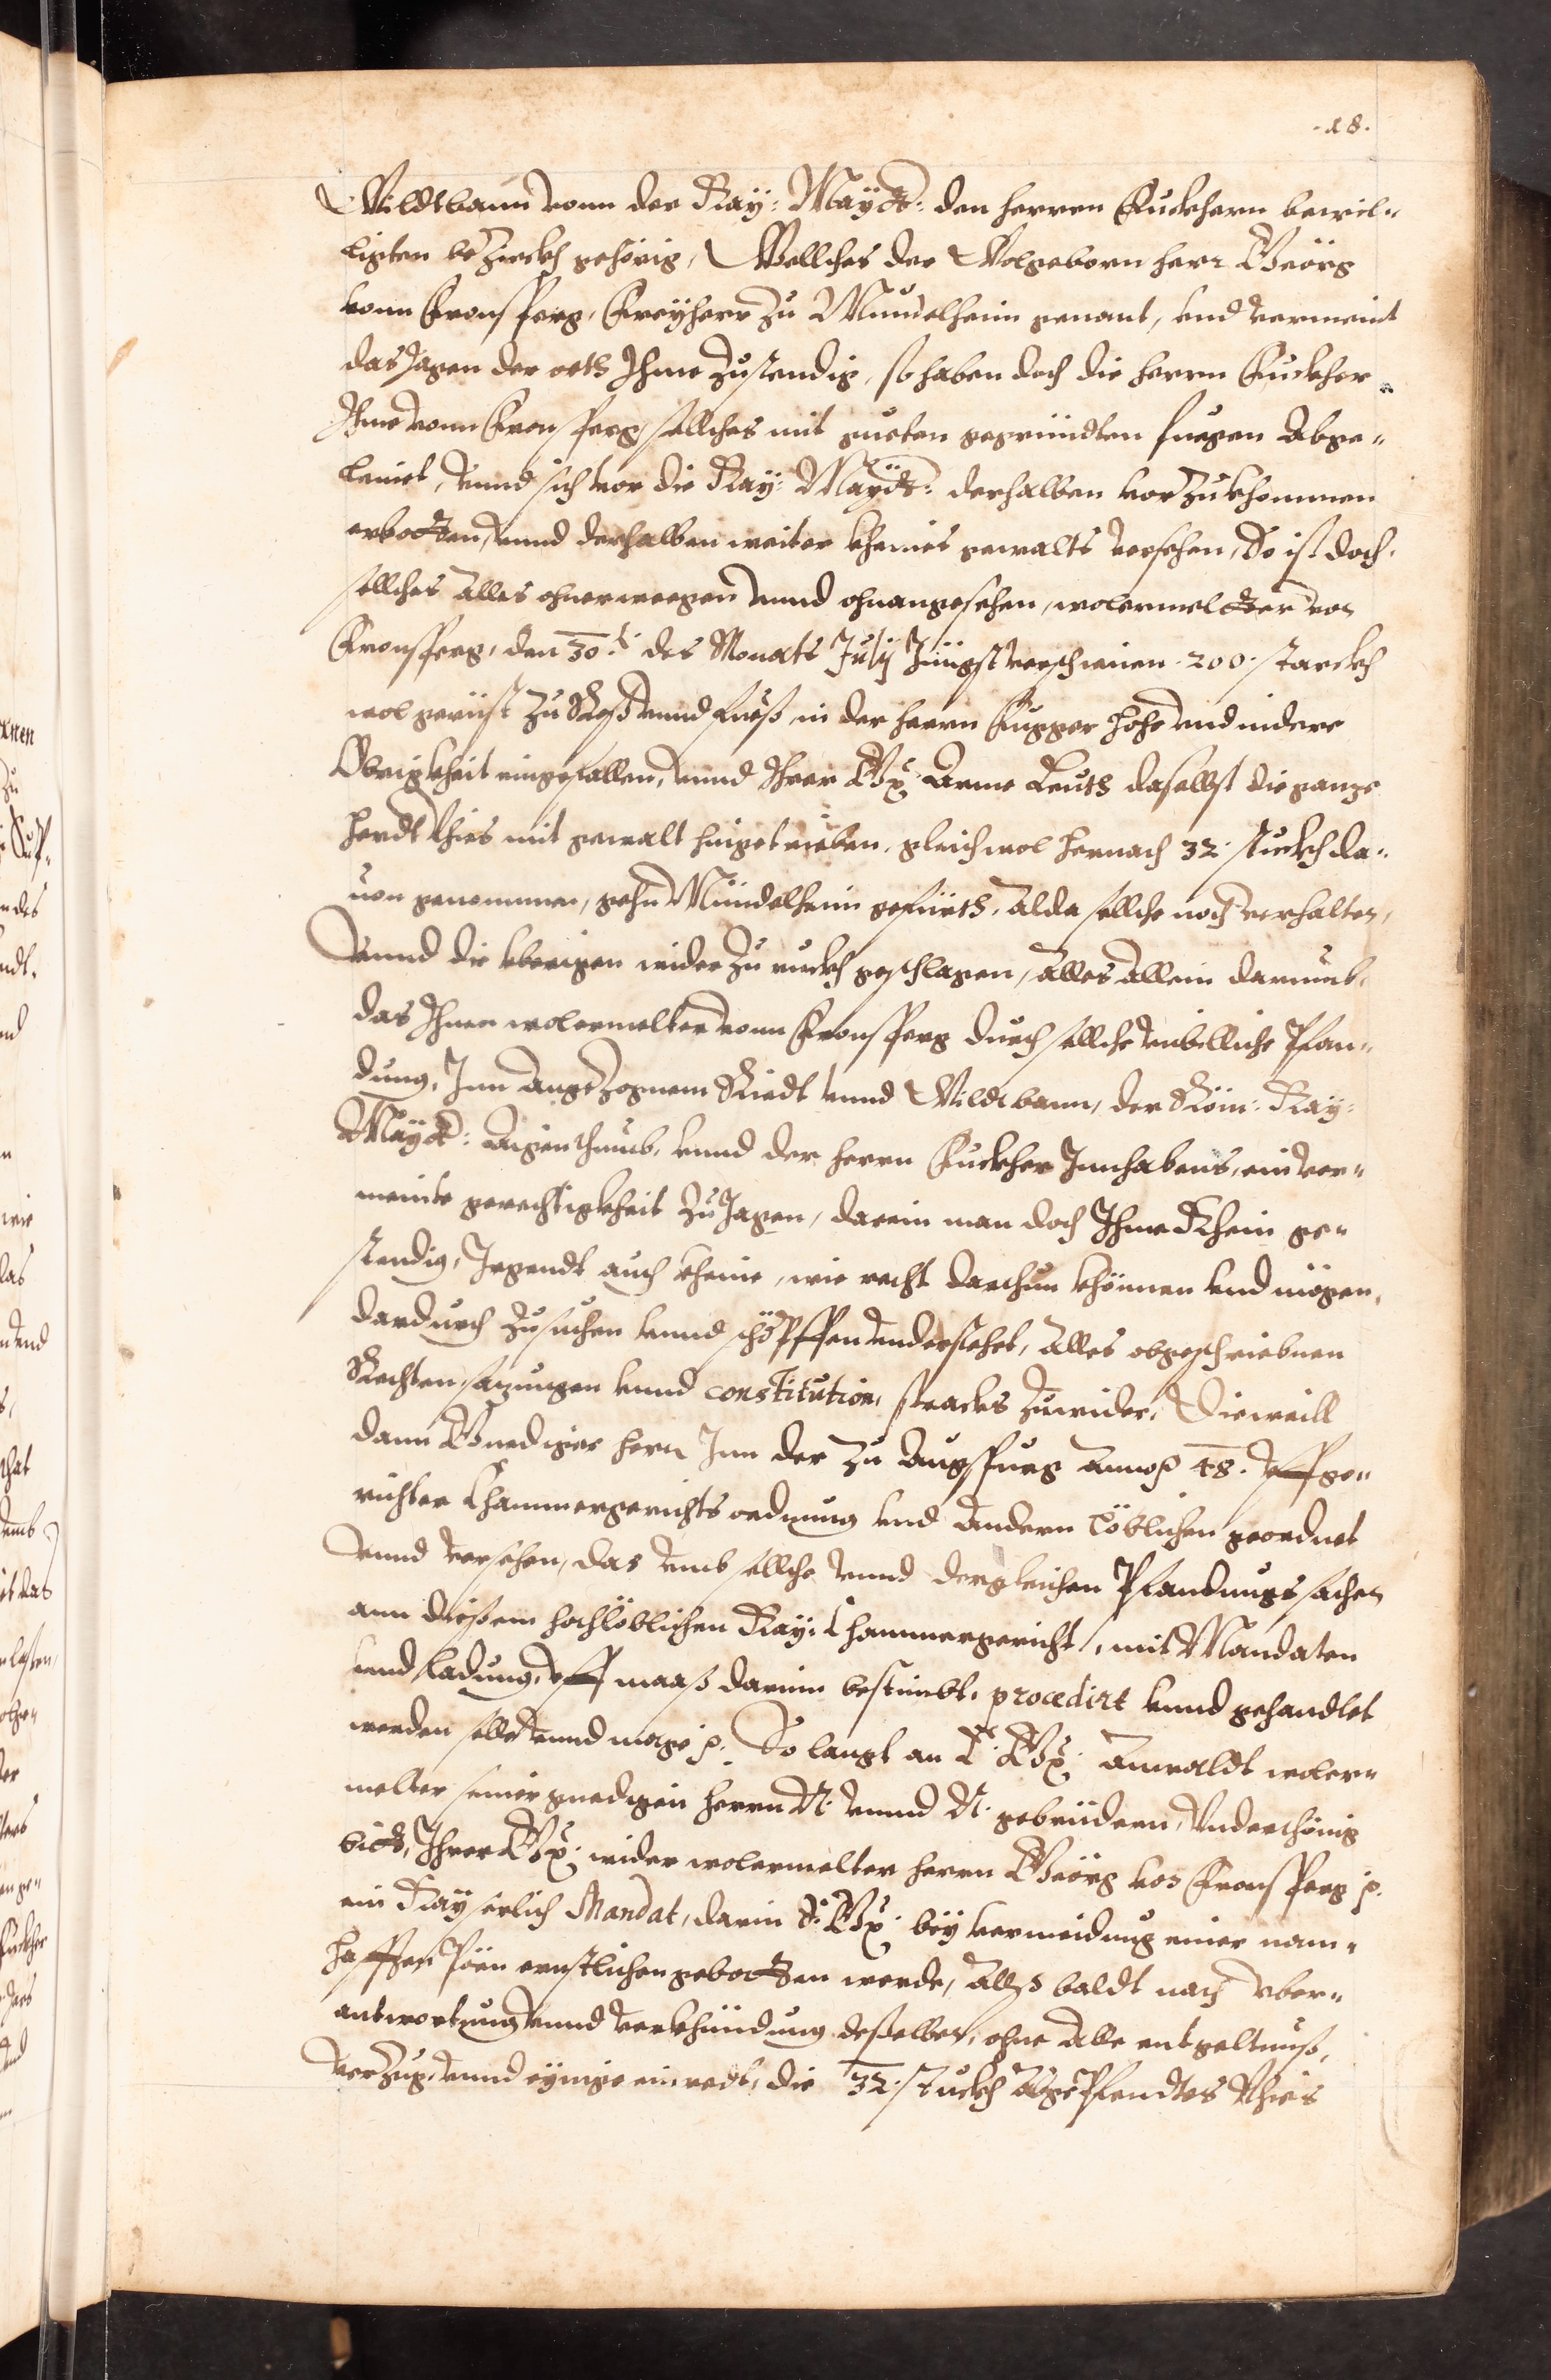 .18.
Wildtbann vonn der Kay: Mayt: den herren Fuckhern bewil-
ligten bezirckh gehörig, Wellches der Wolgeborn herr Geörg
vonn Fronsperg, Freyherr zu Mündelheim genant, vnd vermeint
das Jagen der orth Ihme zustendig, so haben doch die herrn Fuckher
Ihme vonn Fronsperg sollches mit gueten gegründten fuegen Abge-
leinet, vnnd sich vor die Kay: Mayt: derhalben vorzukhommen
erbotten, vnnd derhalben weiter kheines gewalts versehen, So ist doch
sollches alles ohnerwegen vnnd ohnangesehen, wolermeldter von
Fronsperg, den 30.t des Monats Julij Jüngst verschienen .200. starckh
wol gerüst zu Roß vnnd fueß, in der herrn Fugger hohe vnd nidere
Obrigkheit eingefallen, vnnd Ihrer Gn: Arme Leuth daselbst die ganze
herdt vihes mit gewalt hingetrieben, gleichwol hernach 32. stuckh da-
uon genommen, gehn Mündelheim gefüerth, alda sollche noch verhalten,
vnnd die vberigen wider zu ruckh geschlagen, alles allein darumb,
das Ihme wolermelter vonn Fronsperg durch sollche vnbilliche Pfan-
dung, Inn angezognem Riedt vnnd Wildtbann, der Röm: Kay:
Mayt: Aigenthumb, vnnd der herrn Fuckher Innhabens, ein ver-
meinte gerechtigkheit zu Jagen, darein man doch Ihme Khein ge-
stendig, Irgendt auch kheine, wie recht darthun khönnen vnd mögen,
dardurch zusuchen vnnd schöpffen vnderstehet, alles obgeschriebnen
Rechten, sazungen vnnd constitution, stracks zuwider, Dieweill
dann Gnediger herr Inn der zu Augspurg Anno p 48. vffge-
richter Chammergerichts ordnung vnd Andern löblichen geordnet
vnnd versehen, das vmb sollche vnnd dergleichen Pfandungs sachen
ann dießem hochlöblichen Kay: Chammergericht, mit Mandaten
vnnd Ladung, vff maaß darinn bestimbt, procedirt vnnd gehandlet
werden solle vnnd möge p. So langt an E: Gn: Anwaldt woler-
melter seiner gnedigen herrn N. vnnd N. gebrüedern, Vnderthönig
bitt, Ihrer Gn: wider wolermelten herrn Geörg von Fronsperg p.
ein Kayserlich Mandat, darin S: Gn: bey vermeidung einer nam-
hafften Pöen ernstlichen gebotten werde, Allß baldt nach vber-
antwortung vnnd verkhündung deßelben, ohne alle entgeltnuß,
verzug, vnnd eynige einredt, die 32. stuckh abgepfendtes Vihes